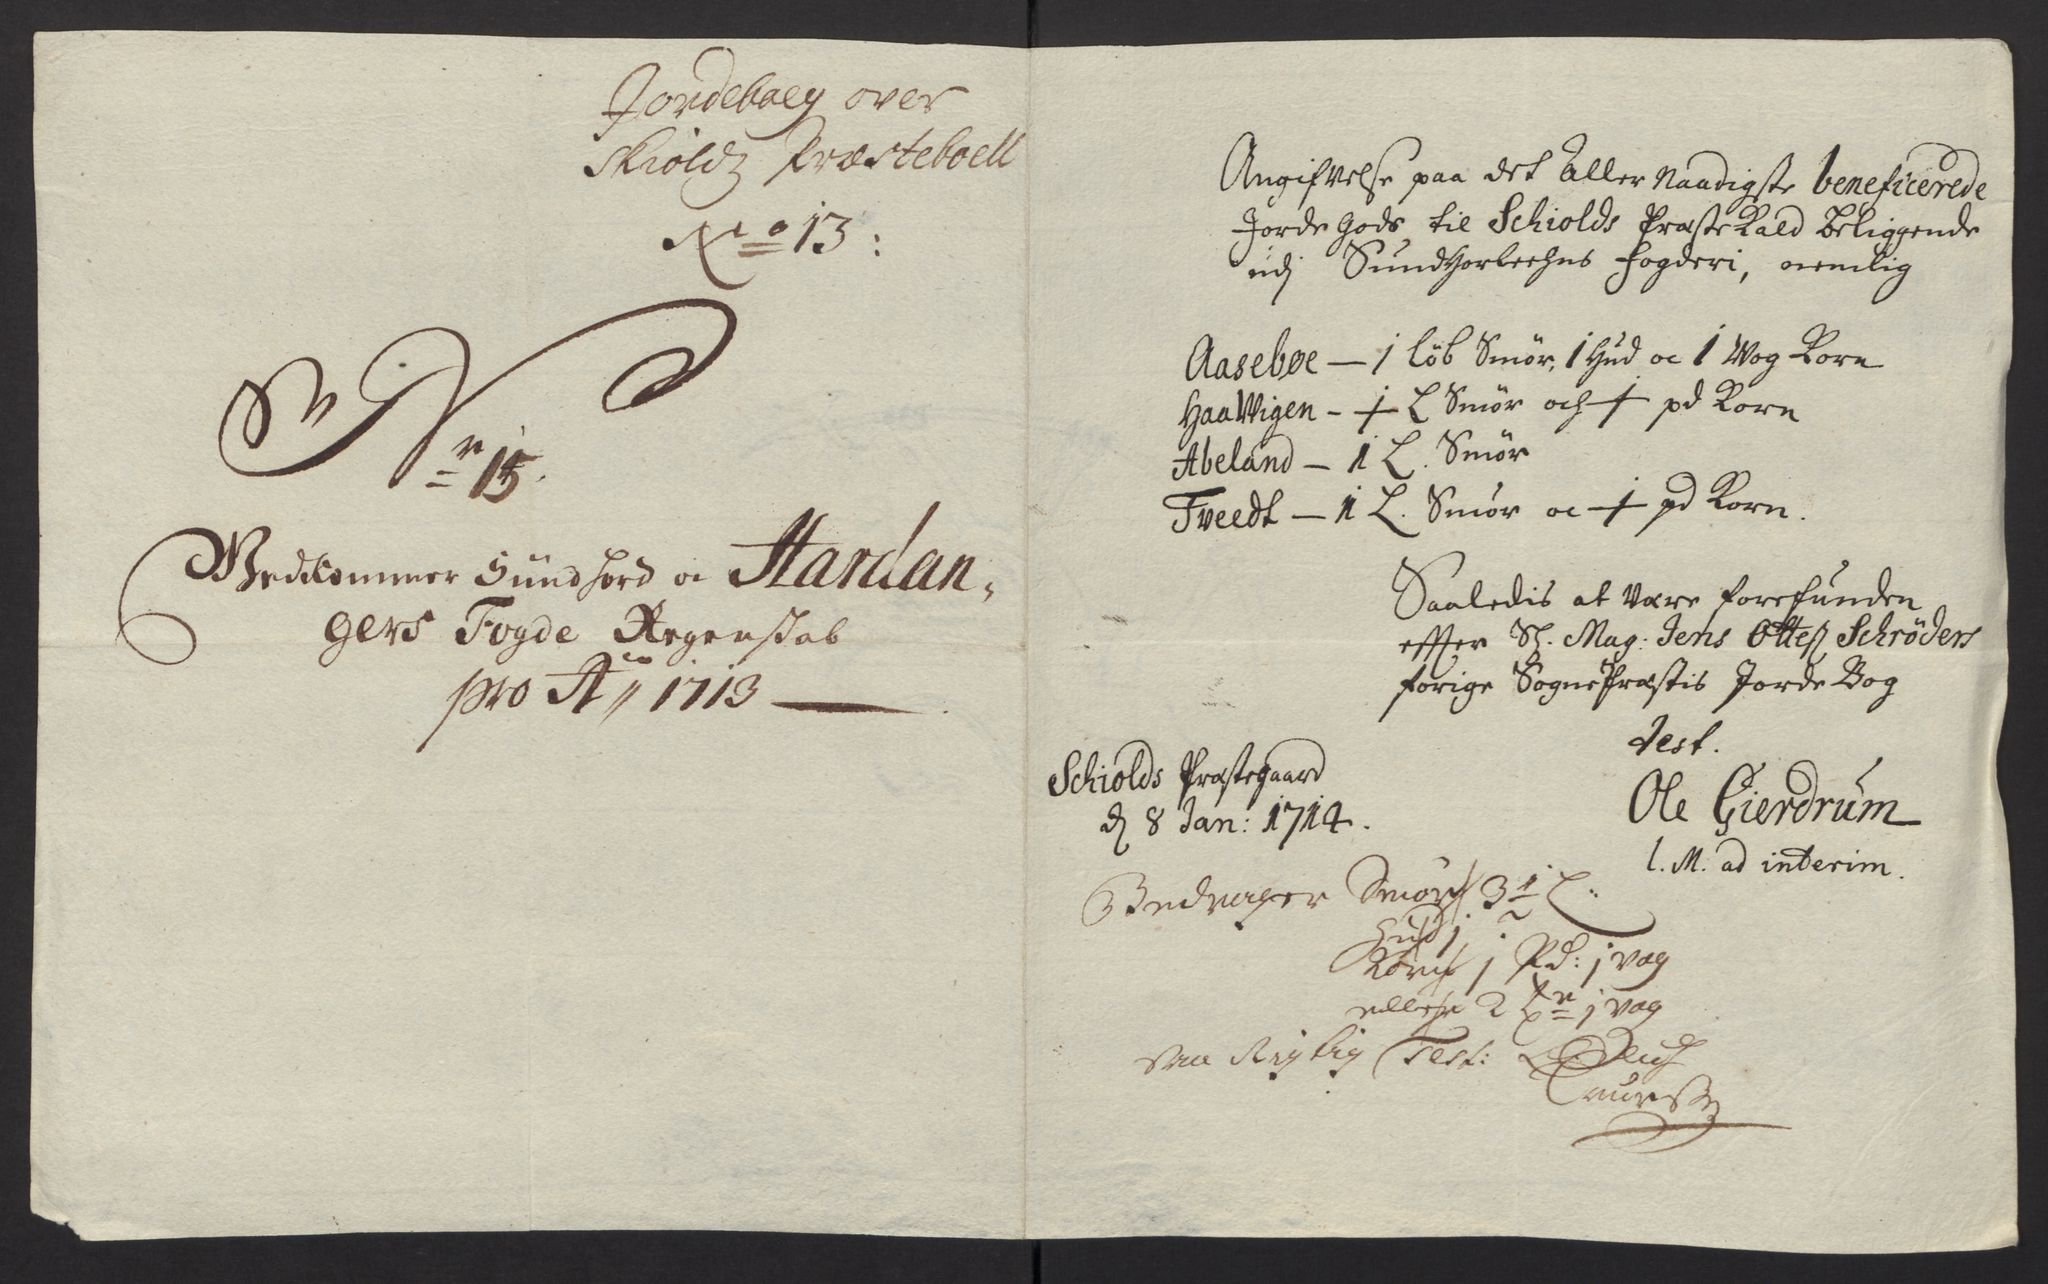 Jordeboeg over
Skioldz Præsteboell
No 13:
Nr 15.
Vedkommer Sundhord oc Hardan,
gers Fogde Regenskab
pro Ao 1713
Angifvelse paa det Aller Naadigste beneficerede
Jorde Gods til Schiolds Præste Kald beliggende
udj Sundhorlehns fogderi, nemlig
Aaseboe — 1 løb Smør, 1 Hud oc 1 Vog Korn
Haavigen - ½ L Smør och ½ pd Korn
Abeland — 1 L. Smør
Tveedt — 1 L. Smør oc ½ pd Korn.
Saaledis at være forefunden
effter Sl. Mag: Jens Ottes Schrøders
forige SognePræstis Jorde Bog
Test.
Ole Gierdrum
l. M. ad interim.
Schiolds Præstegaard
d 8 Jan: 1714.
Bedrager Smør 3½ L:
Hud 1
Korn 1 Pd: 1 vog
eller 2 1 vog
saa Rigtig Test: